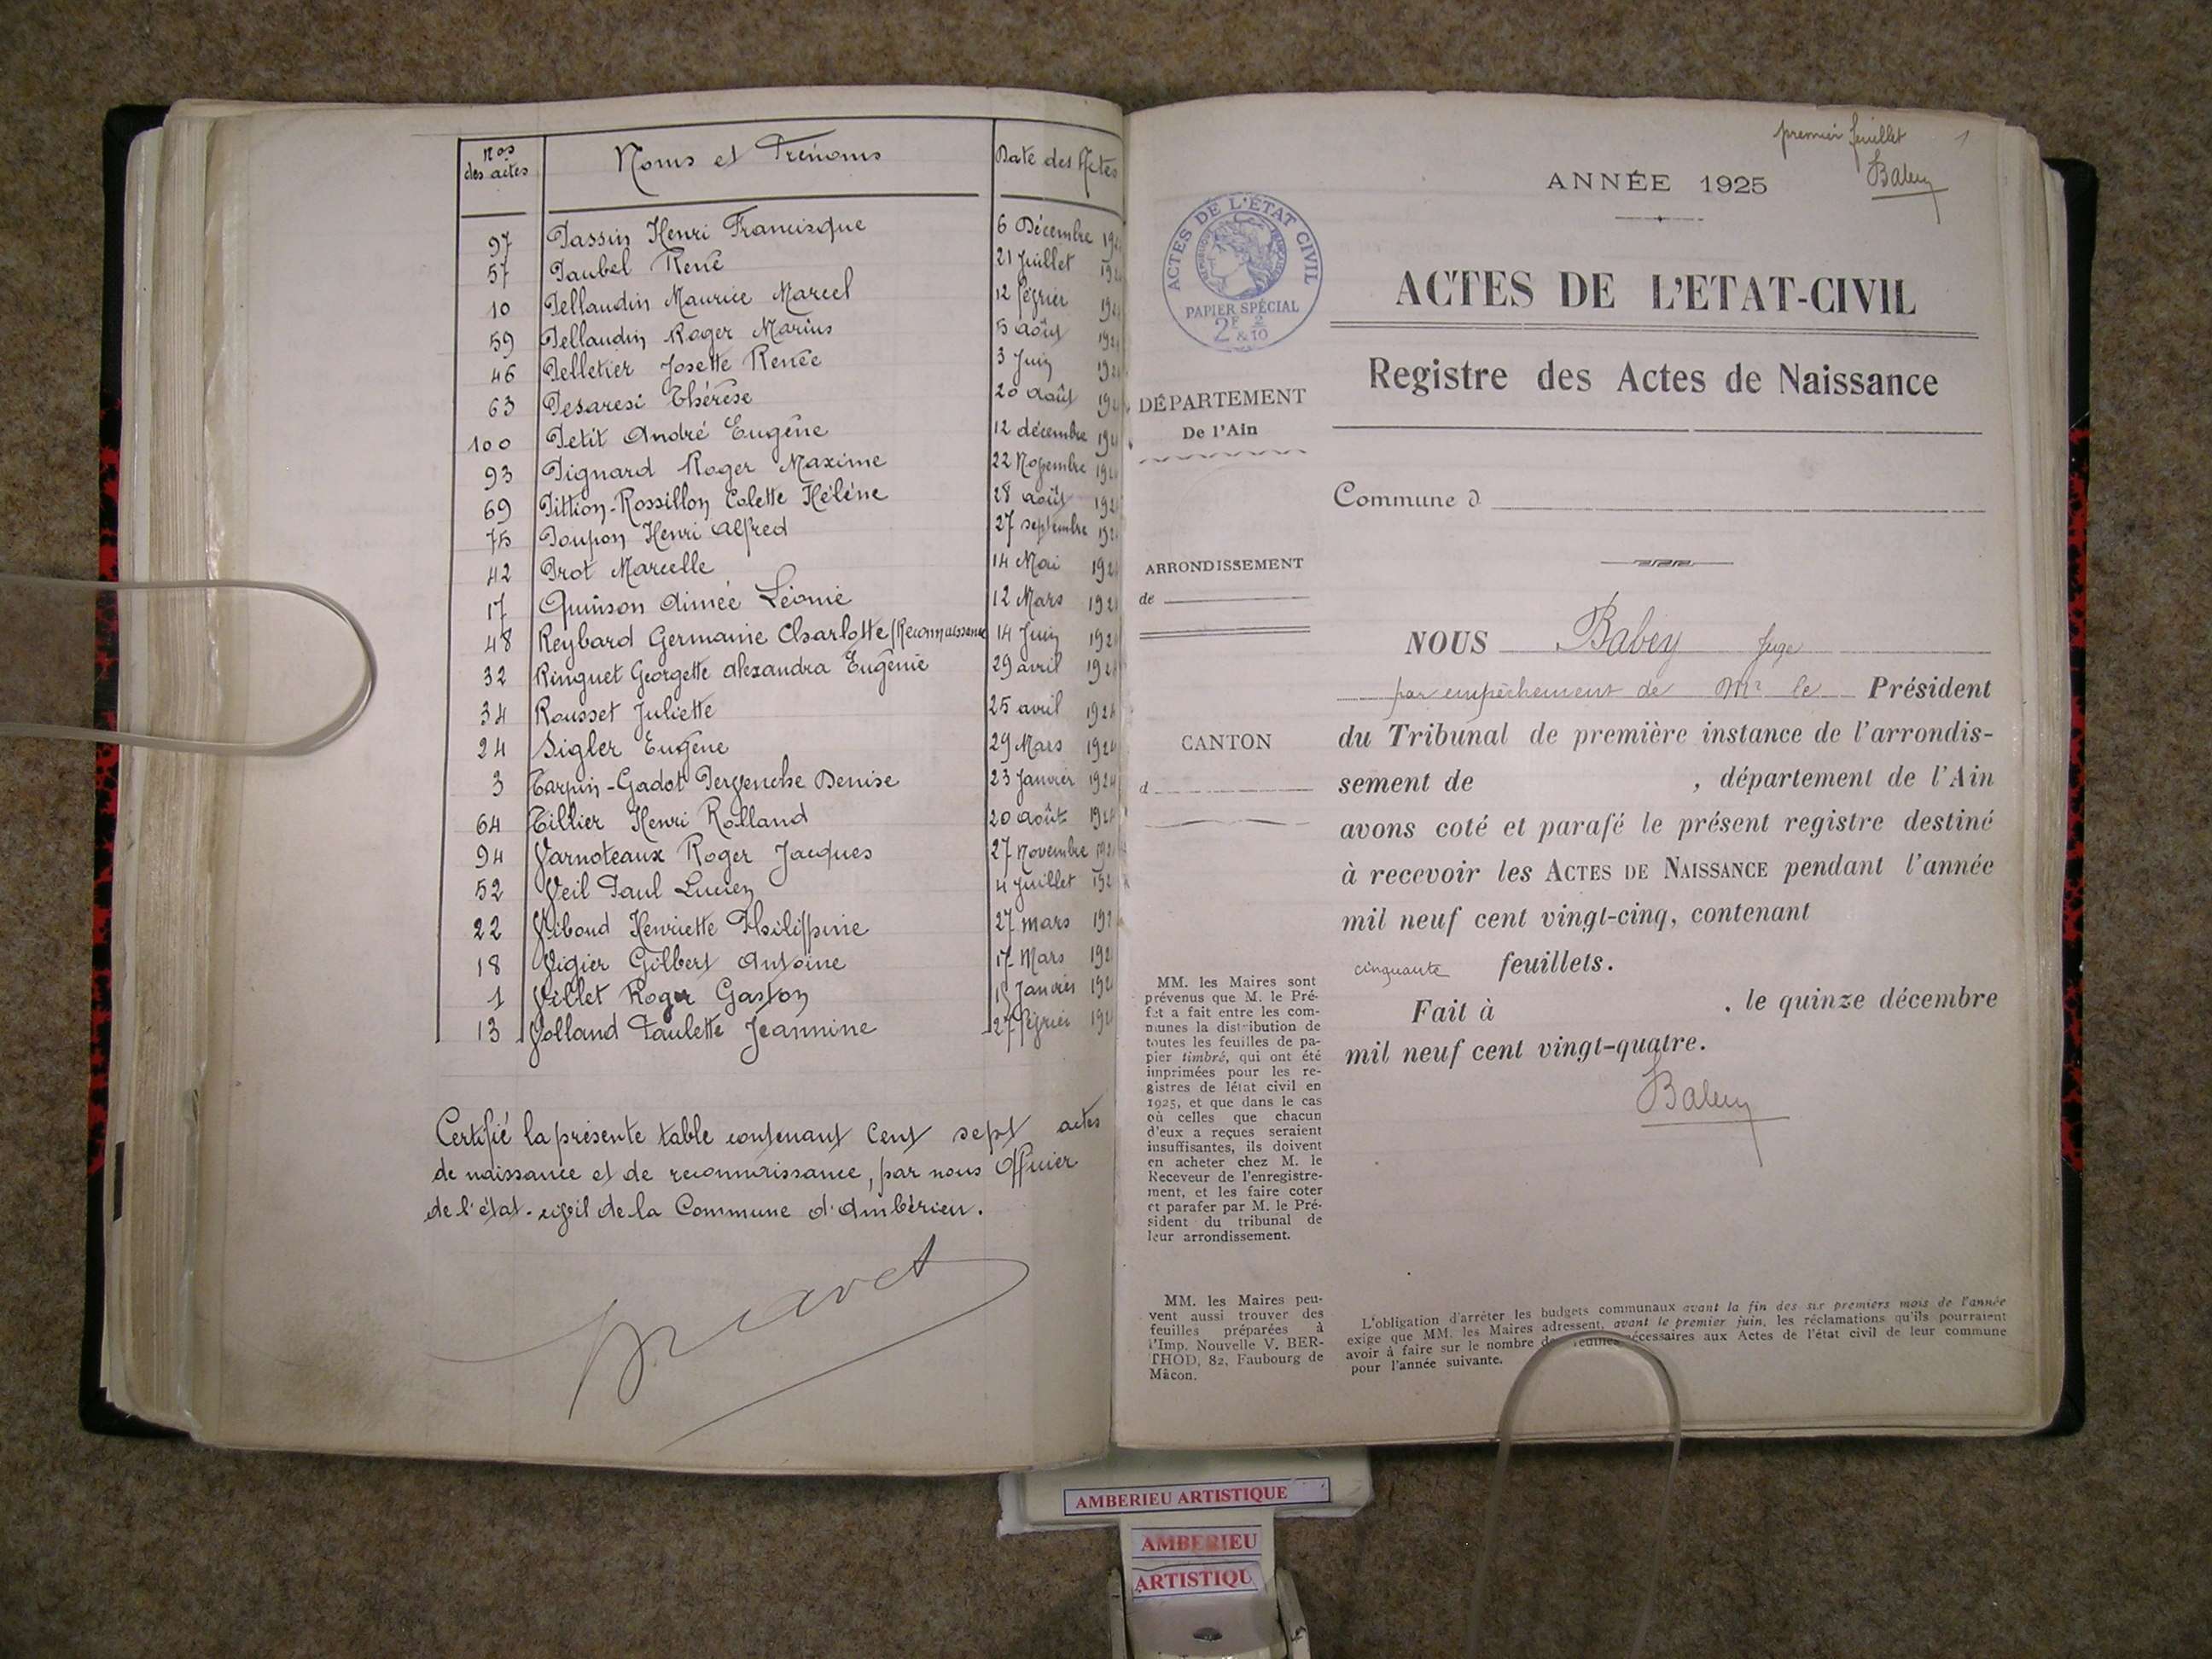 Nos des actes Noms et Prénoms Date des Actes
97 Passin Henri Francisque 6 Décembre
57 Paubel René 21 Juillet
10 Pellaudin Maurice Marcel 12 février
59 Pellaudin Roger Marius 5 août
46 Pelletier Josette Renée 3 Juin
63 Pesaresi Thérèse 20 août
100 Petit André Eugène 12 décembre
93 Pignard Roger Maxime 22 Novembre
69 Pittion-Rossillon Colette Hélène 28 août
75 Poupon Henri Alfred 27 septembre
42 Prot Marcelle 14 Mai
17 Quinson Aimée Léonie 12 Mars
48 Reybard Germaine Charlotte (Reconnaissance 14 Juin
32 Ringuet Georgette Alexandra Eugénie 29 avril
34 Rousset Juliette 25 avril 1924
24 Sigler Eugène 29 Mars 1924
3 Tarpin-Gadot Denise 23 Janvier 1924
64 Tillier Henri Rolland 20 août 1924
94 Varnoteaux Roger Jacques 27 Novembre
52 Veil Paul Lucien 4 Juillet
22 Viboud Henriette Philippine 27 mars
18 Vigier Gilbert Antoine 17 Mars
1 Villet Roger Gaston Janvier
13 Volland Paulette Jeannine 27 février
Certifié la présente table contenant Cent sept actes
de naissance et de reconnaissance, par nous Officier
de l'état-civil de la Commune d'Ambérieu.
premier feuillet 1
Babey
ANNÉE 1925
ACTES DE L'ÉTAT CIVIL
PAPIER SPÉCIAL
2F 2/10
&
ACTES DE L'ETAT-CIVIL
Registre des Actes de Naissance
DÉPARTEMENT
De l'Ain
Commune d
ARRONDISSEMENT
de
CANTON
d
NOUS Babey Juge
par empêchement de Mr le Président
du Tribunal de première instance de l'arrondis-
sement de , département de l'Ain
avons coté et parafé le présent registre destiné
à recevoir les ACTES DE NAISSANCE pendant l'année
mil neuf cent vingt-cinq, contenant
cinquante feuillets.
Fait à , le quinze décembre
mil neuf cent vingt-quatre.
Babey
MM. les Maires sont
prévenus que M. le Pré-
fet a fait entre les com-
munes la distribution de
toutes les feuilles de pa-
pier timbré, qui ont été
imprimées pour les re-
gistres de létat civil en
1925, et que dans le cas
où celles que chacun
d'eux a reçues seraient
insuffisantes, ils doivent
en acheter chez M. le
Receveur de l'enregistre-
ment, et les faire coter
et parafer par M. le Pré-
sident du tribunal de
leur arrondissement.
MM. les Maires peu-
vent aussi trouver des
feuilles préparées à
l'Imp. Nouvelle V. BER-
THOD, 82, Faubourg de
Mâcon.
L'obligation d'arrêter les budgets communaux avant la fin des six premiers mois de l'année
exige que MM. les Maires adressent, avant le premier juin, les réclamations qu'ils pourraient
avoir à faire sur le nombre de feuilles nécessaires aux Actes de l'état civil de leur commune
pour l'année suivante.
AMBERIEU ARTISTIQUE
AMBERIEU
ARTISTIQU